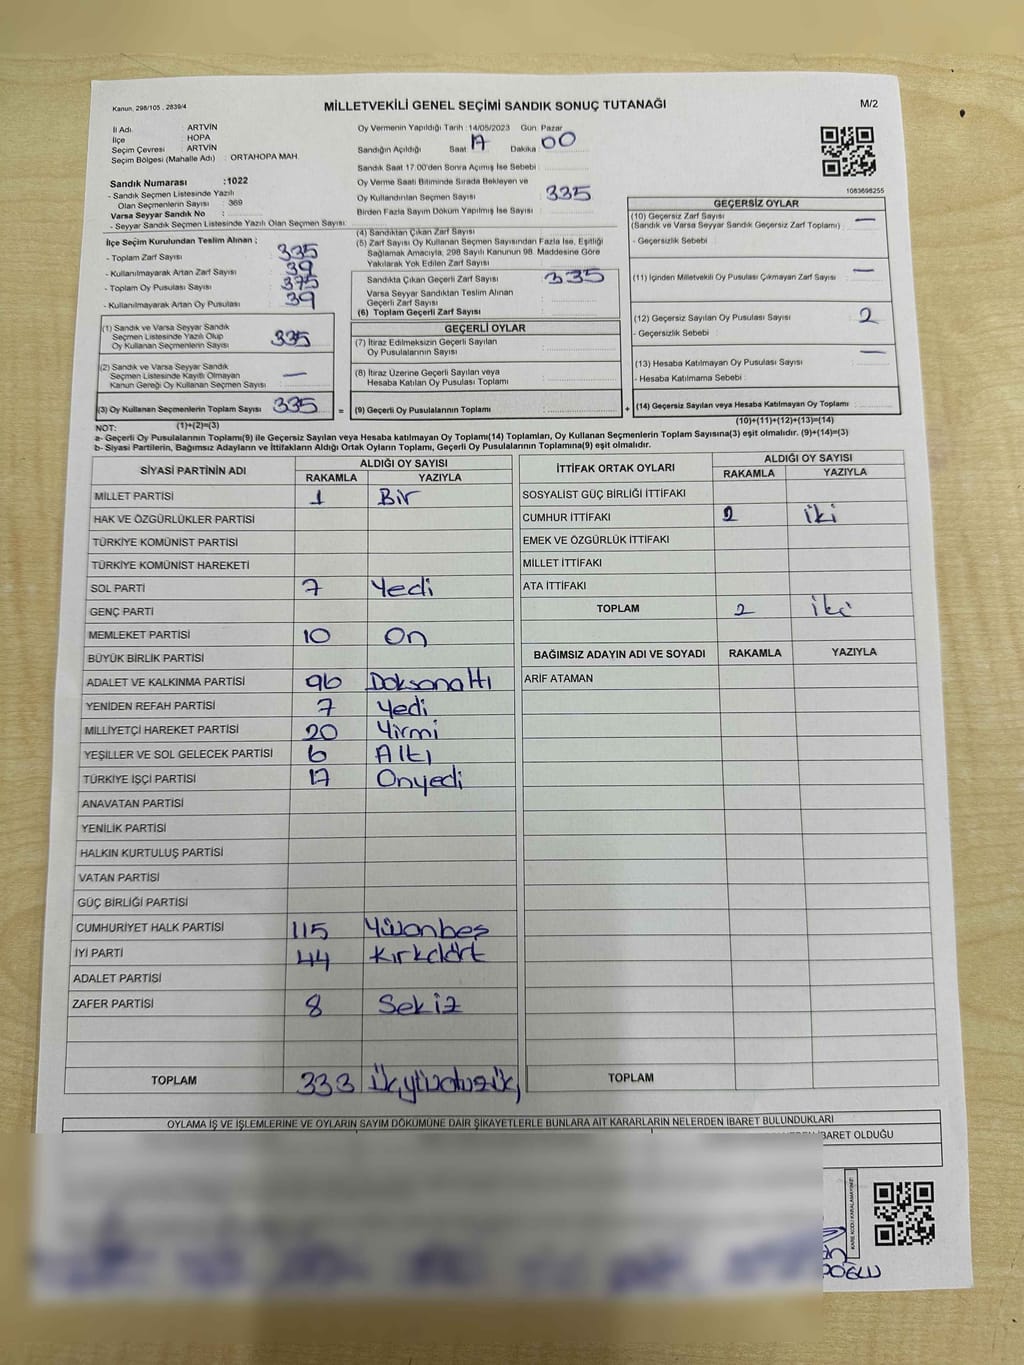 Kanun, 298/105 , 2839/4
MİLLETVEKİLİ GENEL SEÇİMİ SANDIK SONUÇ TUTANAĞI
M/2
İl Adı : ARTVİN
İlçe : HOPA
Seçim Çevresi : ARTVİN
Seçim Bölgesi (Mahalle Adı) : ORTAHOPA MAH.
Sandık Numarası :1022
- Sandık Seçmen Listesinde Yazılı
Olan Seçmenlerin Sayısı 369
Varsa Seyyar Sandık No :
- Seyyar Sandık Seçmen Listesinde Yazılı Olan Seçmen Sayısı:
İlçe Seçim Kurulundan Teslim Alınan ;
- Toplam Zarf Sayısı : 335
- Kullanılmayarak Artan Zarf Sayısı : 39
- Toplam Oy Pusulası Sayısı : 375
- Kullanılmayarak Artan Oy Pusulası : 39
(1) Sandık ve Varsa Seyyar Sandık
Seçmen Listesinde Yazılı Olup
Oy Kullanan Seçmenlerin Sayısı : 335
(2) Sandık ve Varsa Seyyar Sandık
Seçmen Listesinde Kayıtlı Olmayan
Kanun Gereği Oy Kullanan Seçmen Sayısı : —
(3) Oy Kullanan Seçmenlerin Toplam Sayısı : 335 =
Oy Vermenin Yapıldığı Tarih :14/05/2023 Gün: Pazar
Sandığın Açıldığı Saat : 17 Dakika : 00
Sandık Saat 17:00'den Sonra Açımış İse Sebebi :
Oy Verme Saati Bitiminde Sırada Bekleyen ve
Oy Kullandırılan Seçmen Sayısı : 335
Birden Fazla Sayım Döküm Yapılmış İse Sayısı :
(4) Sandıktan Çıkan Zarf Sayısı
(5) Zarf Sayısı Oy Kullanan Seçmen Sayısından Fazla İse, Eşitliği
Sağlamak Amacıyla, 298 Sayılı Kanunun 98. Maddesine Göre
Yakılarak Yok Edilen Zarf Sayısı
Sandıkta Çıkan Geçerli Zarf Sayısı : 335
Varsa Seyyar Sandıktan Teslim Alınan
Geçerli Zarf Sayısı :
(6) Toplam Geçerli Zarf Sayısı :
GEÇERLİ OYLAR
(7) İtiraz Edilmeksizin Geçerli Sayılan
Oy Pusulalarının Sayısı :
(8) İtiraz Üzerine Geçerli Sayılan veya
Hesaba Katılan Oy Pusulası Toplamı :
(9) Geçerli Oy Pusulalarının Toplamı : +
1083698255
GEÇERSİZ OYLAR
(10) Geçersiz Zarf Sayısı : —
(Sandık ve Varsa Seyyar Sandık Geçersiz Zarf Toplamı)
- Geçersizlik Sebebi :
(11) İçinden Milletvekili Oy Pusulası Çıkmayan Zarf Sayısı : —
(12) Geçersiz Sayılan Oy Pusulası Sayısı : 2
- Geçersizlik Sebebi :
(13) Hesaba Katılmayan Oy Pusulası Sayısı : —
- Hesaba Katılmama Sebebi :
(14) Geçersiz Sayılan veya Hesaba Katılmayan Oy Toplamı :
NOT: (1)+(2)=(3) (10)+(11)+(12)+(13)=(14)
a- Geçerli Oy Pusulalarının Toplamı(9) ile Geçersiz Sayılan veya Hesaba katılmayan Oy Toplamı(14) Toplamları, Oy Kullanan Seçmenlerin Toplam Sayısına(3) eşit olmalıdır. (9)+(14)=(3)
b- Siyasi Partilerin, Bağımsız Adayların ve İttifakların Aldığı Ortak Oyların Toplamı, Geçerli Oy Pusulalarının Toplamına(9) eşit olmalıdır.
SİYASİ PARTİNİN ADI ALDIĞI OY SAYISI
RAKAMLA YAZIYLA
MİLLET PARTİSİ 1 Bir
HAK VE ÖZGÜRLÜKLER PARTİSİ
TÜRKİYE KOMÜNİST PARTİSİ
TÜRKİYE KOMÜNİST HAREKETİ
SOL PARTİ 7 Yedi
GENÇ PARTİ
MEMLEKET PARTİSİ 10 On
BÜYÜK BİRLİK PARTİSİ
ADALET VE KALKINMA PARTİSİ 96 Doksanaltı
YENİDEN REFAH PARTİSİ 7 Yedi
MİLLİYETÇİ HAREKET PARTİSİ 20 Yirmi
YEŞİLLER VE SOL GELECEK PARTİSİ 6 Altı
TÜRKİYE İŞÇİ PARTİSİ 17 Onyedi
ANAVATAN PARTİSİ
YENİLİK PARTİSİ
HALKIN KURTULUŞ PARTİSİ
VATAN PARTİSİ
GÜÇ BİRLİĞİ PARTİSİ
CUMHURİYET HALK PARTİSİ 115 Yüzonbeş
İYİ PARTİ 44 Kırkdört
ADALET PARTİSİ
ZAFER PARTİSİ 8 Sekiz
TOPLAM 333
İTTİFAK ORTAK OYLARI ALDIĞI OY SAYISI
RAKAMLA YAZIYLA
SOSYALİST GÜÇ BİRLİĞİ İTTİFAKI
CUMHUR İTTİFAKI 2 iki
EMEK VE ÖZGÜRLÜK İTTİFAKI
MİLLET İTTİFAKI
ATA İTTİFAKI
TOPLAM 2 iki
BAĞIMSIZ ADAYIN ADI VE SOYADI RAKAMLA YAZIYLA
ARİF ATAMAN
TOPLAM
OYLAMA İŞ VE İŞLEMLERİNE VE OYLARIN SAYIM DÖKÜMÜNE DAİR ŞİKAYETLERLE BUNLARA AİT KARARLARIN NELERDEN İBARET BULUNDUKLARI
İBARET OLDUĞU